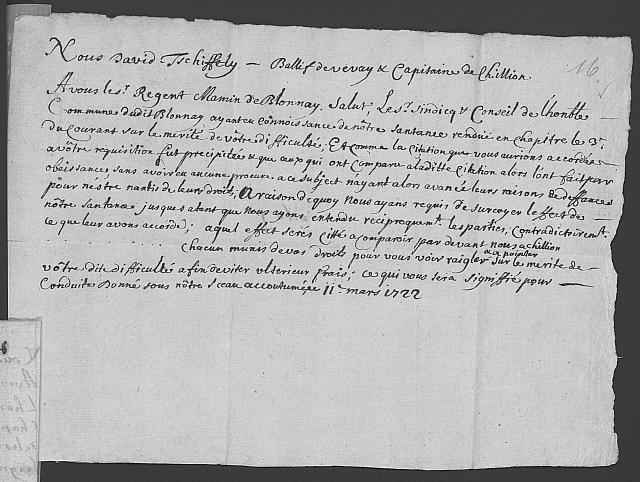 116
Nous David Tschiffely — Ballif de vevay & Capitaine de Chillion
A vous le Sr. Regent Mamin de Blonnay, Salut, Le Sr. Sindicq & Conseil de l'honble
Commune dudit Blonnay ayant eu connoissance de nôtre Santance rendüe en chapitre le 3e.
du Courant sur le merite de vôtre difficulté, Et comme la Citation que vous aurions accordée
a vôtre requisition fut precipitée & que ceux qui ont comparu a ladite Citation alors l'ont fait par
obaissance sans avoir eu aucune procure a ce Subject n'ayant alors avancé leurs raisons de deffances
pour n'estre nantis de leur droit, a raison de quoy Nous ayans requis de surcoyer l'effect de
nôtre Santance jusques a tant que Nous ayons entendu reciproquemt. les parties, Contradictoiremt.
Ce que leur avons accordé; aquel effect serés Citté a Comparoir par devant Nous a Chillion
Chacun munis de vos droits pour vous voir raigler sur le merite de
a a pointer
vôtre dite difficulté a fin d'eviter ulterieur frais; Ce qui vous sera signiffié pour
Conduite Donné sous nôtre Sceau accoutumé, ce 11e. mars 1722